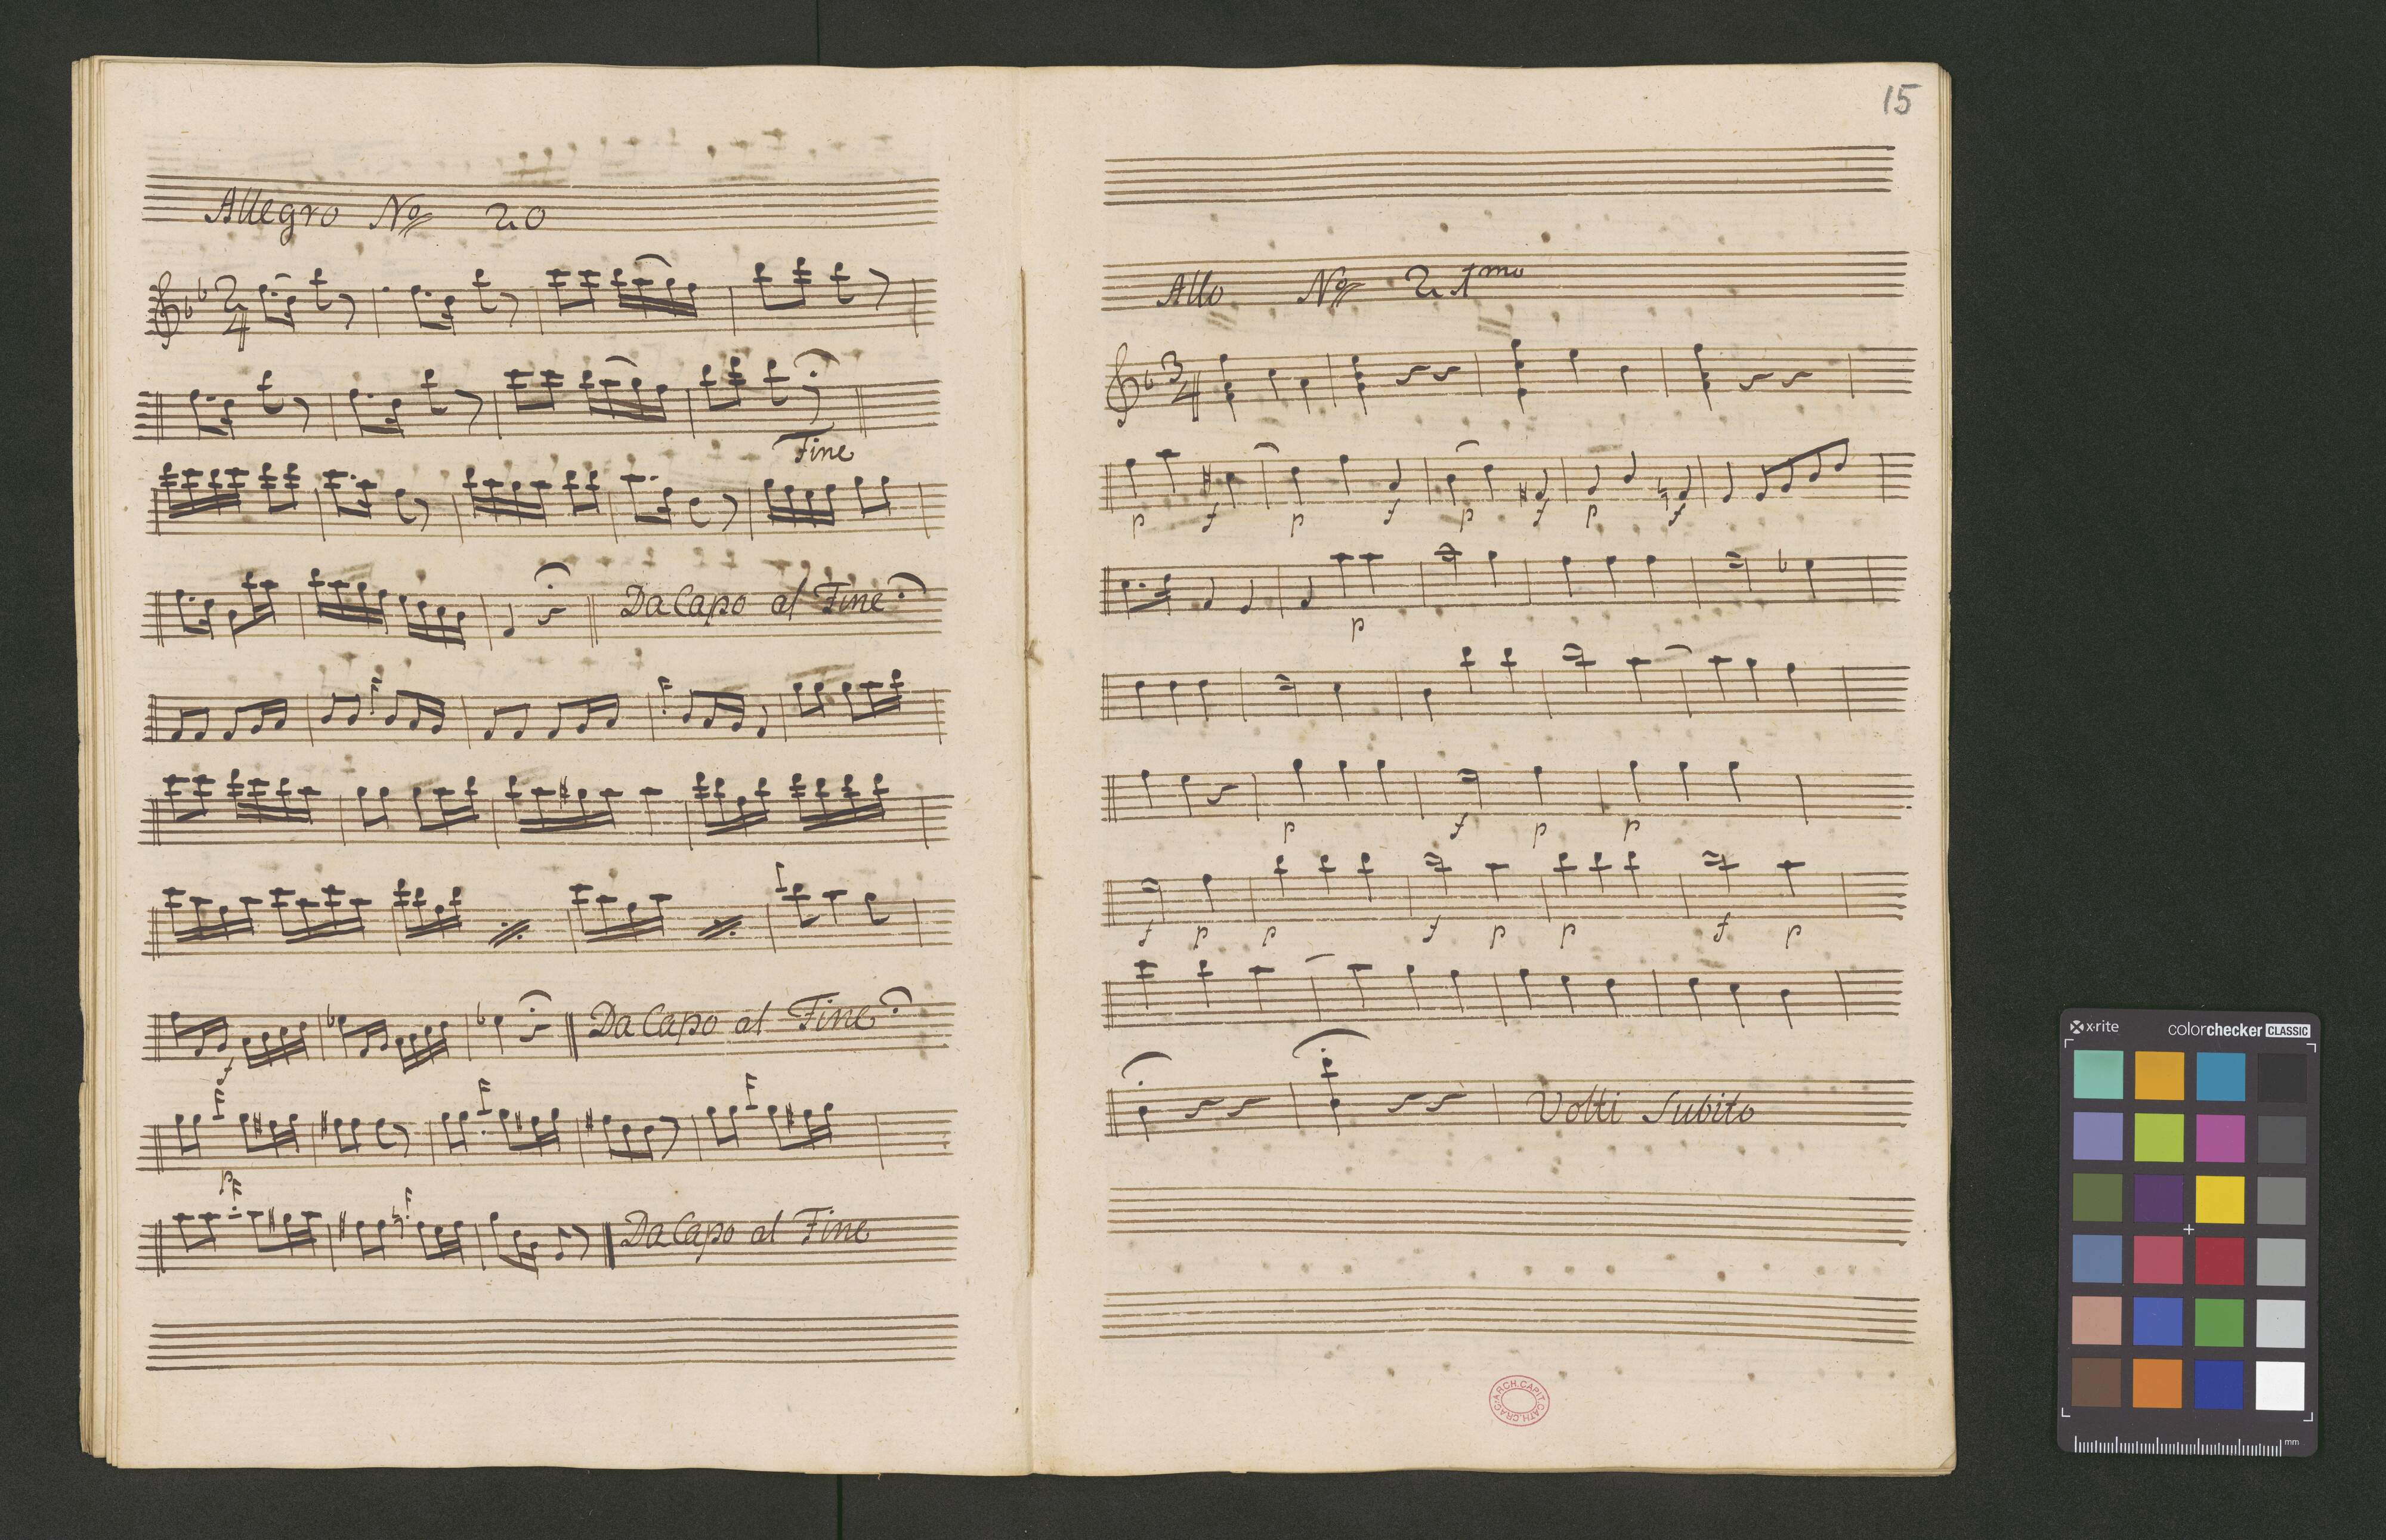 Allegro No 20
2
4
Fine
Da Capo al Fine
f
Da Capo al Fine
p
Da Capo al Fine
15
Allo No 21mo
3
4
p f p f p f p f
p
p f p p
f p p f p p f p
Volti Subito
ARCH. CAPIT. CATH. CRAC.
x-rite colorchecker CLASSIC
mm